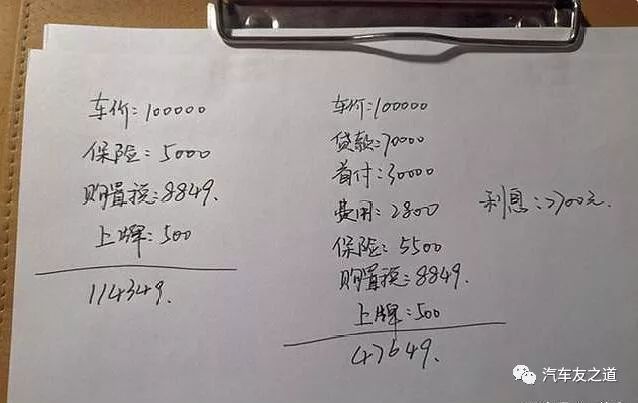 车价:100000
保险:5000
购置税:8849.
上牌:500
114349.
车价:100000
贷款:70000
首付:30000
费用:2800
保险:5500
购置税:8849.
上牌:500
47649.
利息:2700元.
汽车友之道